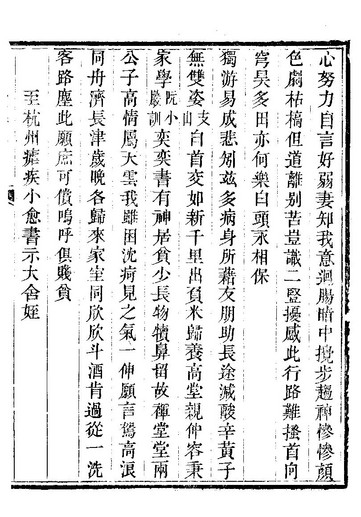 心努力自言好弱妻知我意迴腸暗中攪步趨神慘慘顏
色腐枯槁但道離別苦豈識二豎擾感此行路難搔首向
穹昊多田亦何樂白頭永相保
獨游易成悲矧茲多病身所藉友朋助長途減酸辛黃子
無雙姿支山白首交如新千里出負米歸養高堂親仲容秉
家學阮小巖訓奕奕書有神居貧少長物犢鼻留故禪堂堂兩
公子高情屬天雲我雖困沈痾見之氣一伸願言駕高浪
同舟濟長津歲晚各歸來家室同欣欣斗酒肯過從一洗
客路塵此願庶可償嗚呼俱賤貧
至杭州瘧疾小愈書示大含姪